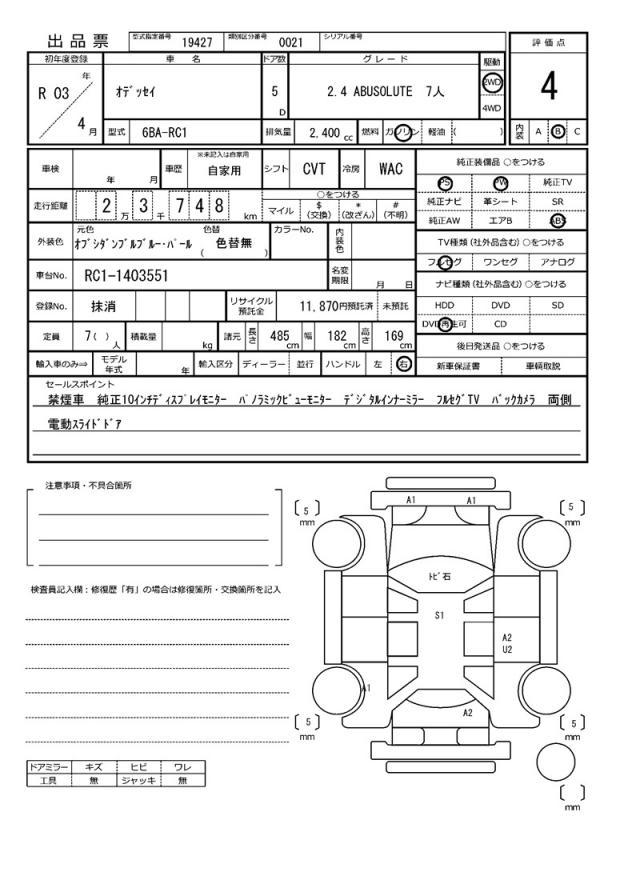 出品票 型式指定番号 19427 類別区分番号 0021 シリアル番号
評価点
4
内装 A B C
初年度登録 車名 ドア数 グレード 駆動
R 03 年 4 月 オデッセイ 5 D 2.4 ABUSOLUTE 7人 2WD 4WD
型式 6BA-RC1 排気量 2,400 cc 燃料 ガソリン 軽油 ( )
車検 年 月 車歴 ※未記入は自家用 自家用 シフト CVT 冷房 WAC
走行距離 2 万 3 千 7 4 8 km ○をつける
マイル $(交換) *(改ざん) #(不明)
外装色 元色 オブシダンブルブルー・パール 色替 ( 色替無 ) カラーNo. 内装色
車台No. RC1-1403551 名変期限 月 日
登録No. 抹消 リサイクル預託金 11,870円預託済 未預託
定員 7( ) 人 積載量 kg 諸元 長さ 485 cm 幅 182 cm 高さ 169 cm
輸入車のみ⇒ モデル年式 年 輸入区分 ディーラー 並行 ハンドル 左 右
純正装備品 ○をつける
PS PW 純正TV
純正ナビ 革シート SR
純正AW エアB ABS
TV種類 (社外品含む) ○をつける
フルセグ ワンセグ アナログ
ナビ種類 (社外品含む) ○をつける
HDD DVD SD
DVD再生可 CD
後日発送品 ○をつける
新車保証書 車輌取説
セールスポイント
禁煙車 純正10インチディスプレイモニター パノラミックビューモニター デジタルインナーミラー フルセグTV バックカメラ 両側
電動スライドドア
注意事項・不具合箇所
検査員記入欄：修復歴「有」の場合は修復箇所・交換箇所を記入
ドアミラー キズ ヒビ ワレ
工具 無 ジャッキ 無
A1 A1
[ 5 ] mm
[ 5 ] mm
トビ石
S1
A2
U2
A1
A2
[ 5 ] mm
[ 5 ] mm
[ ] mm